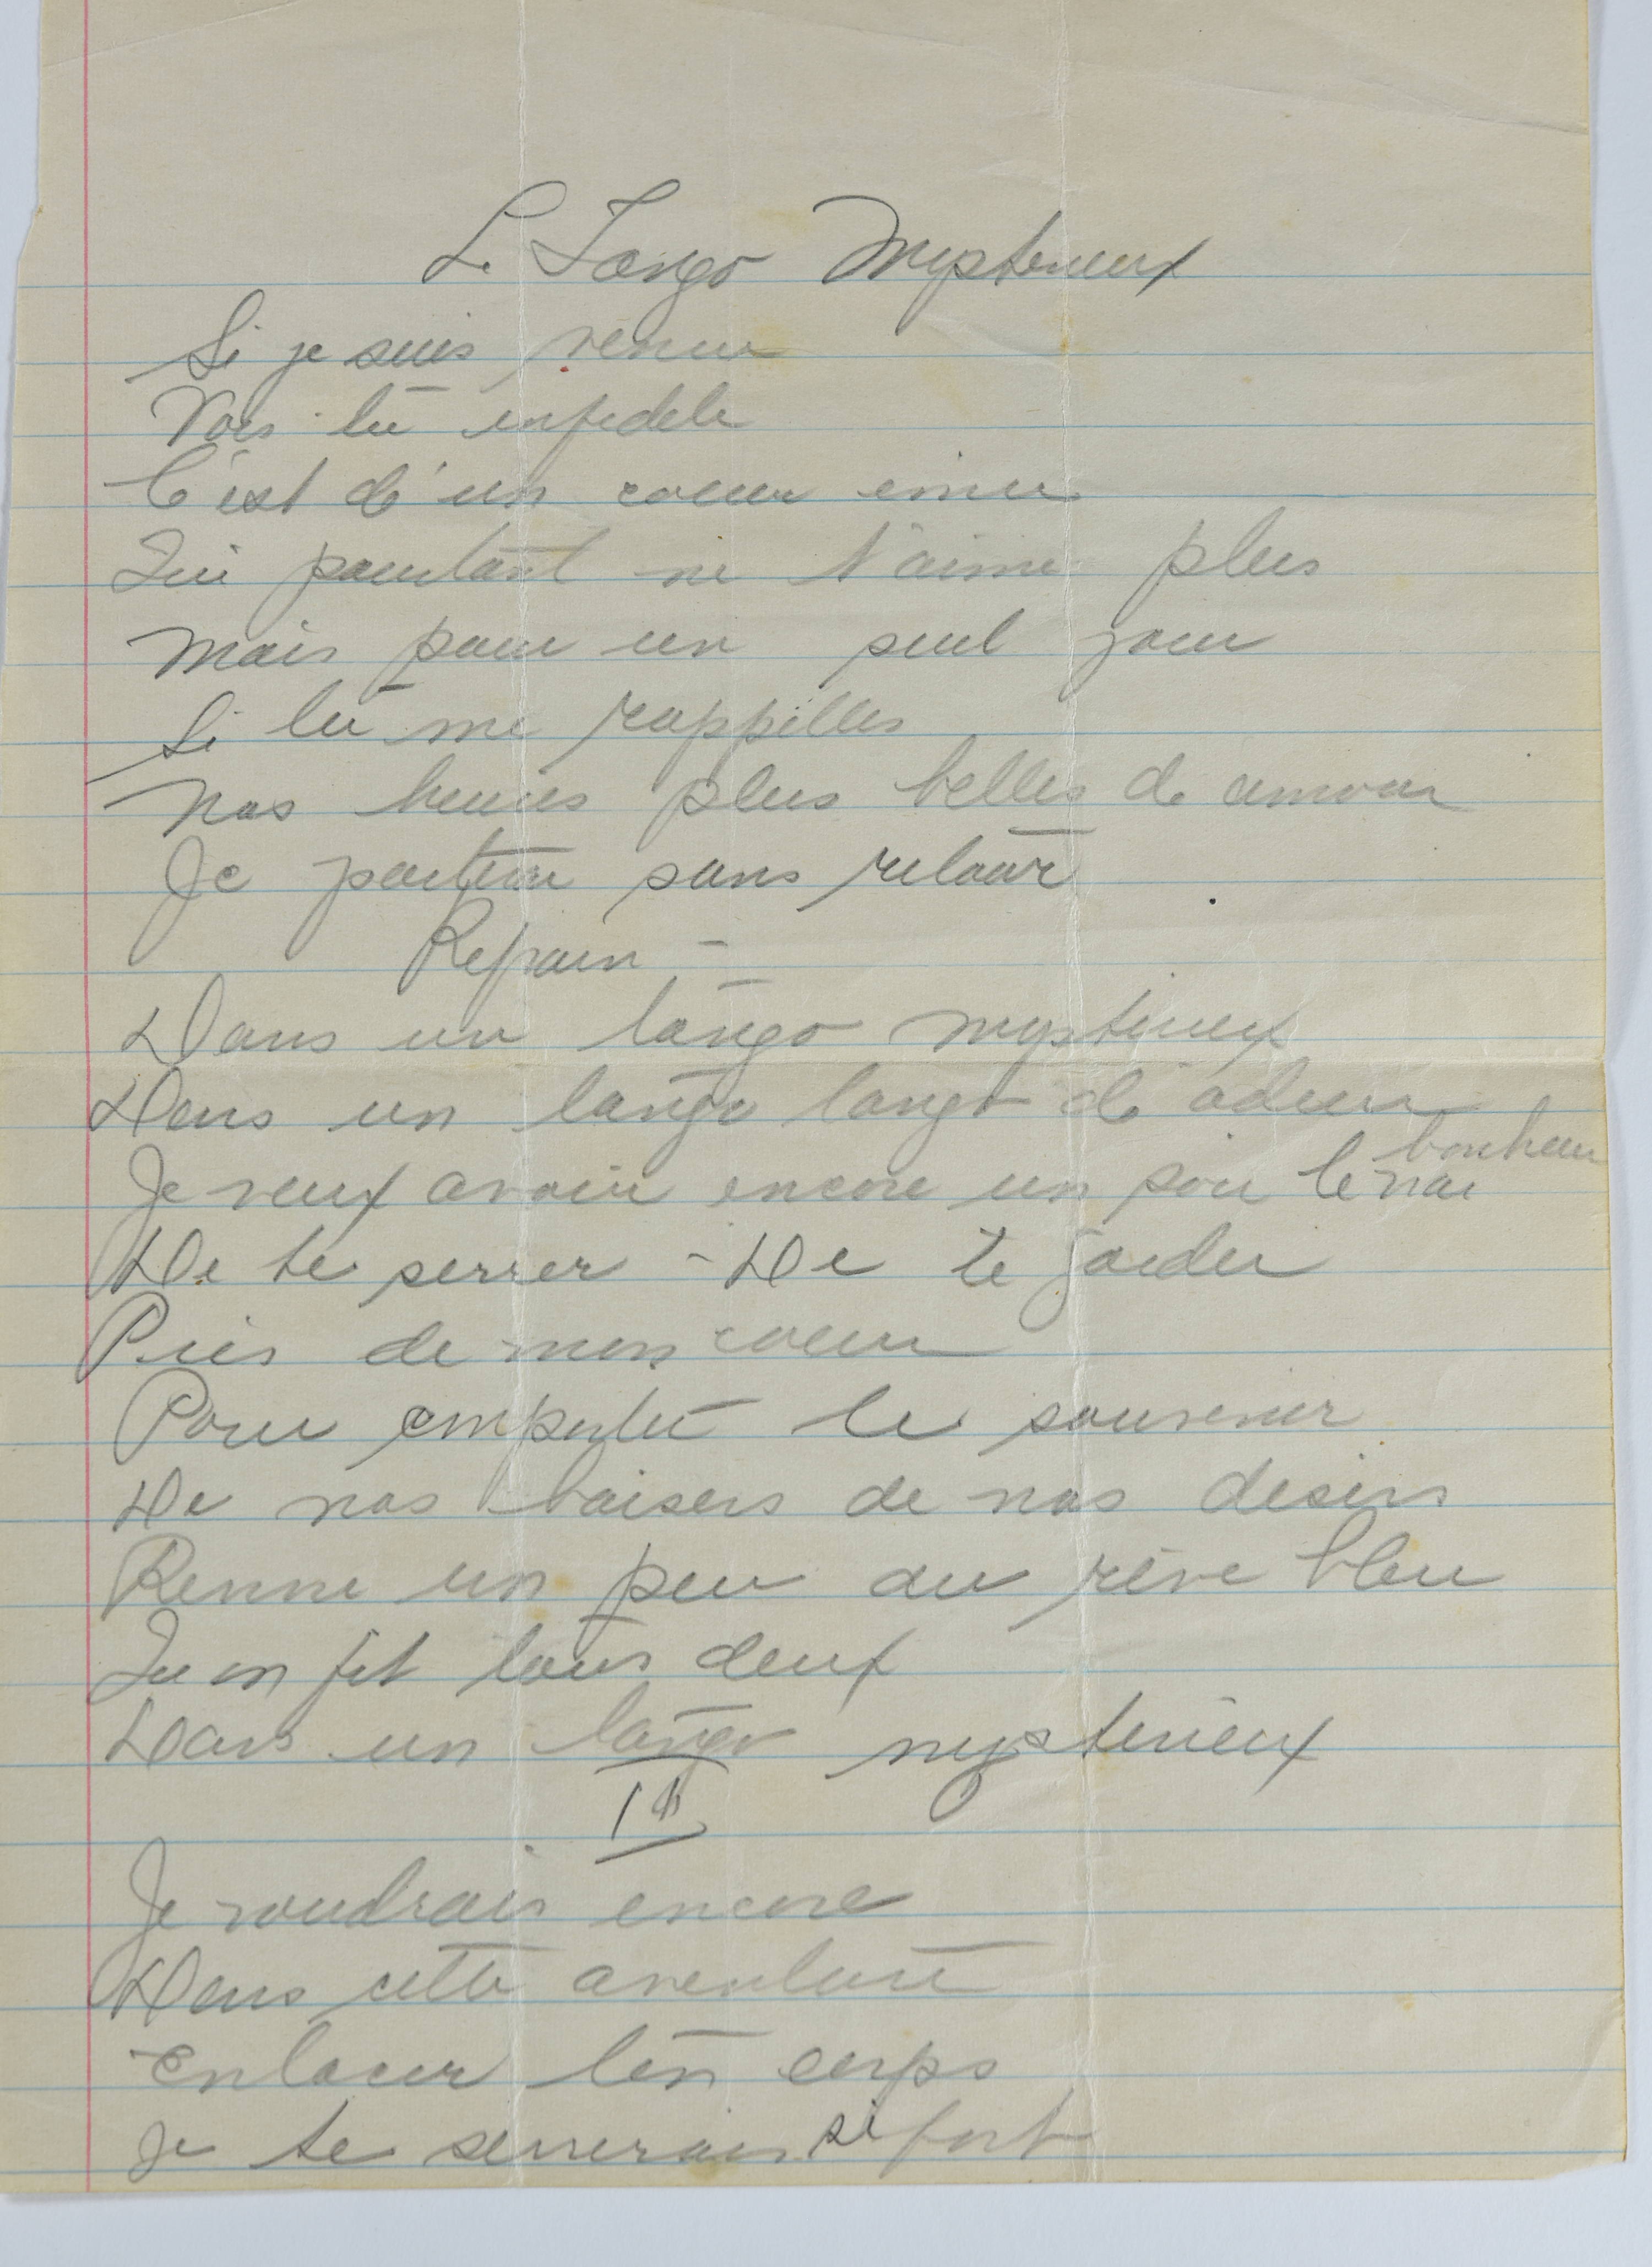 Le Tango Mysterieux
Si je suis venu
Vois tu infidele
C'est d'un coeur emu
Qui pourtant ne t'aime plus
Mais pour un seul jour
Si tu me rappelles
Nos heures plus belles de amour
Je partirai sans retour
Refrain -
Dans un tango mysterieux
Dans un tango tango d'adieu
Je veux avoir encore un soir le vrai bonheur
De te serrer - De te garder
Pres de mon coeur
Pour emporter le souvenir
De nos baisers de nos desirs
Revivre un peu du rêve bleu
Qu on fit tous deux
Dans un tango mysterieux
II
Je voudrais encore
Dans cette aventure
Enlacer ton corps
Je te serrerais si fort